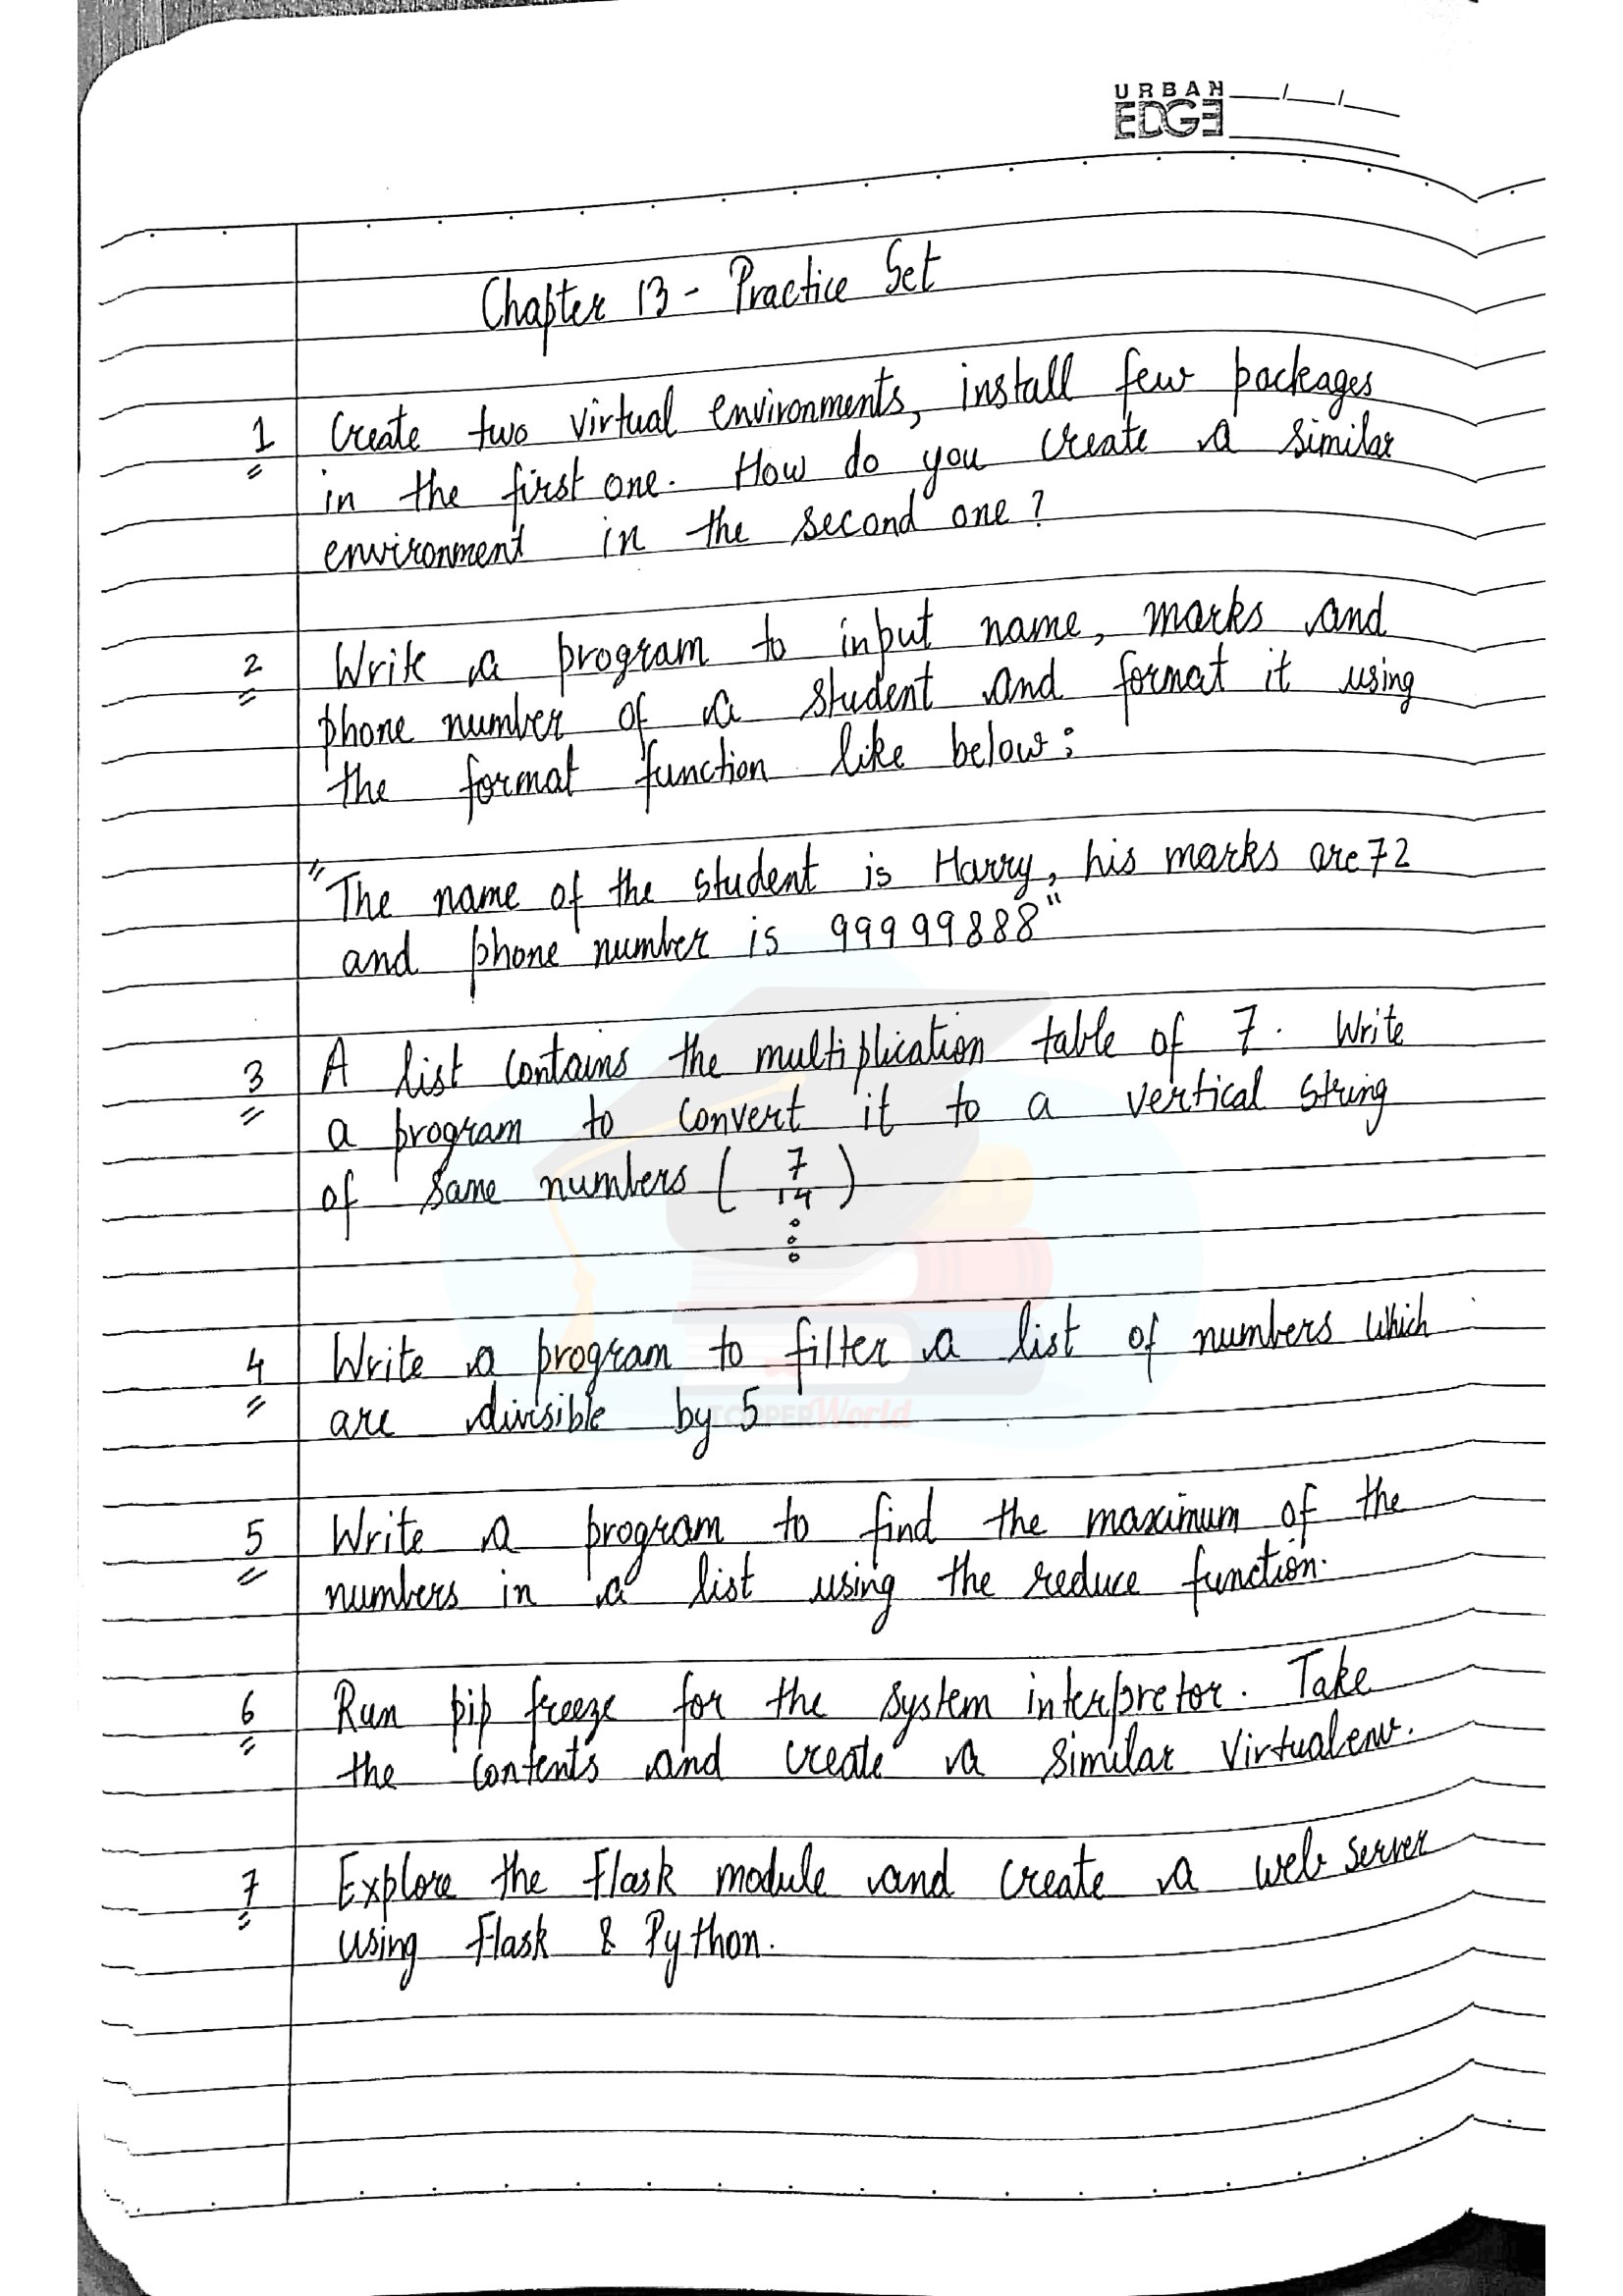 URBAN
EDGE
Chapter 13 - Practice Set
1 Create two virtual environments, install few packages
in the first one. How do you create a similar
environment in the second one?
2 Write a program to input name, marks and
phone number of a student and format it using
the format function like below:
"The name of the student is Harry, his marks are 72
and phone number is 99999888"
3 A list contains the multiplication table of 7. Write
a program to convert it to a vertical string
of same numbers ( 7 )
14
4 Write a program to filter a list of numbers which
are divisible by 5
TOPPERWorld
5 Write a program to find the maximum of the
numbers in a list using the reduce function.
6 Run pip freeze for the system interpretor. Take
the contents and create a similar virtualenv.
7 Explore the Flask module and create a web server
using Flask & Python.